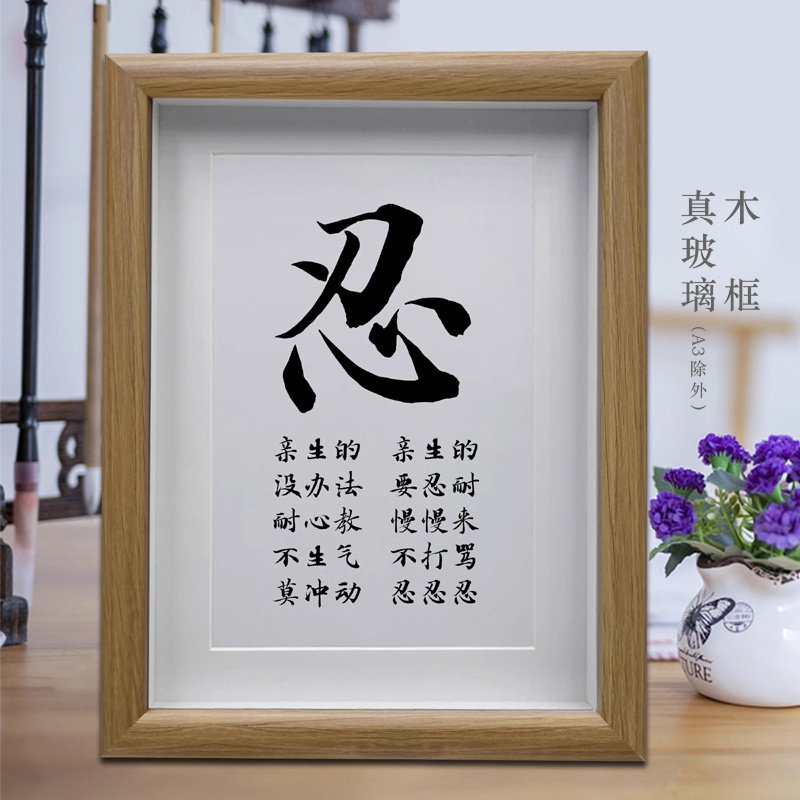 忍
亲生的 亲生的
没办法 要忍耐
耐心教 慢慢来
不生气 不打骂
莫冲动 忍忍忍
木框
真玻璃(A3除外)
TURE